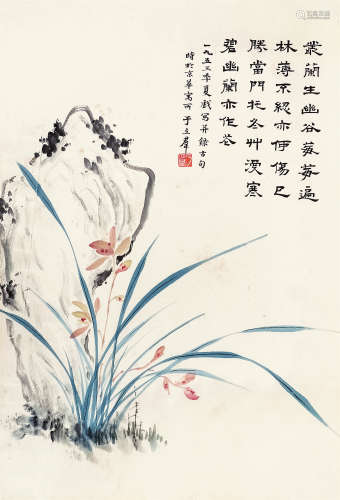 叢蘭生幽谷莓莓遍
林薄不紉亦何傷已
勝當門托冬艸漫寒
碧幽蘭亦作花
一九五三季夏戲寫并錄古句
時於京華寓所 于立群